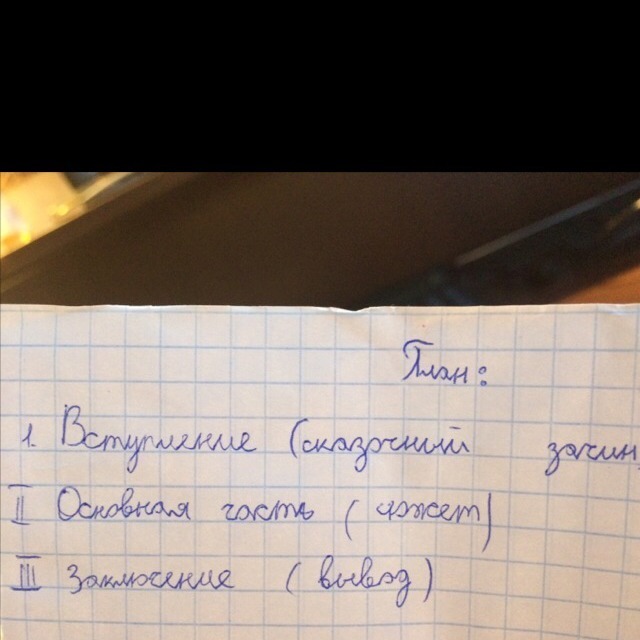 План:
1. Вступление (сказочный зачин,
II Основная часть (сюжет)
III Заключение (вывод)